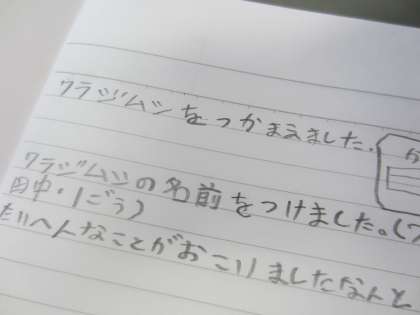 ワラジムシをつかまえました.
ワラジムシの名前をつけました。(
田中・1ごう)
たいへんなことがおこりましたなんと